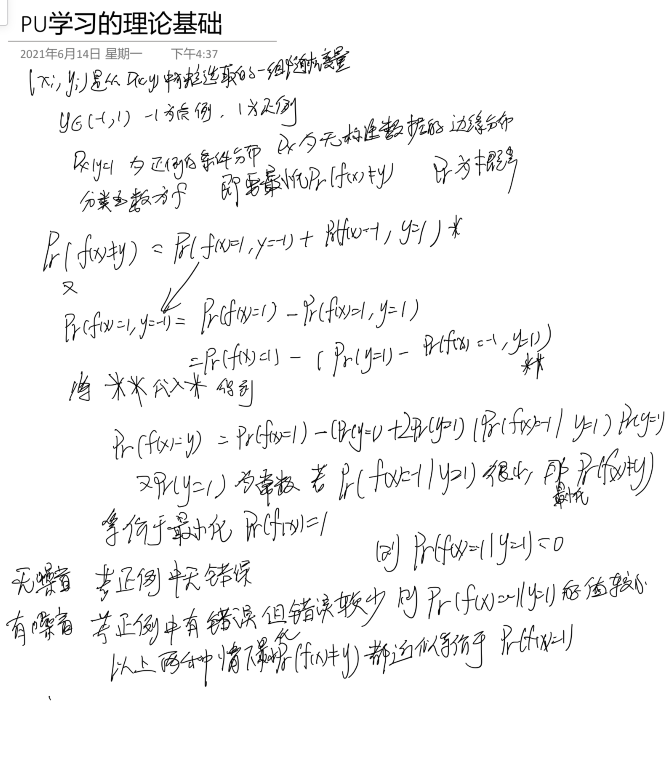 PU学习的理论基础
2021年6月14日 星期一 下午4:37
(xi, yi) 是从 D(x,y) 中 选取的一组随机变量
y∈(-1,1) -1为负例, 1为正例
Dx|y=1 为正例的条件分布 Dx为无标注数据的边缘分布
分类函数为f 即要最小化Pr(f(x)≠y) Pr为概率
Pr(f(x)≠y) = Pr(f(x)=1, y=-1) + Pr(f(x)=-1, y=1) *
又
Pr(f(x)=1, y=-1) = Pr(f(x)=1) - Pr(f(x)=1, y=1)
=Pr(f(x)=1) - (Pr(y=1) - Pr(f(x)=-1, y=1))
**
将 ** 代入* 得到
Pr(f(x)≠y) = Pr(f(x)=1) - (Pr(y=1) + 2Pr(y=1) (Pr(f(x)=-1 | y=1) Pr(y=1)
又Pr(y=1) 为常数 若 Pr(f(x)=-1 | y=1) 很小, 即 最小化 Pr(f(x)≠y)
等价于最小化 Pr(f(x)=1
无噪音 若正例中无错误 则 Pr(f(x)=-1 | y=1) = 0
有噪音 若正例中有错误但错误较少 则 Pr(f(x)=-1|y=1)的值较小
以上两种情况最小化Pr(f(x)≠y) 都近似等价于 Pr(f(x)=1)